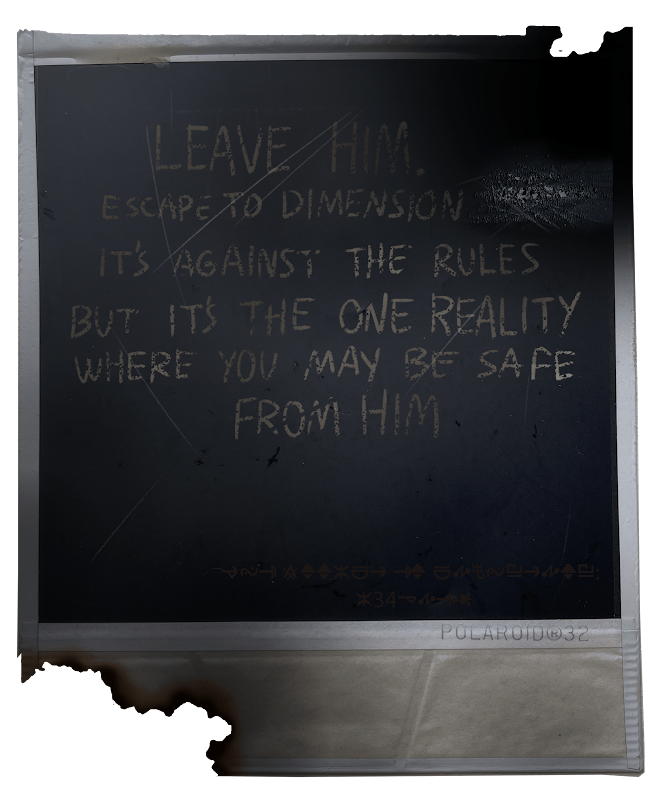 LEAVE HIM.
ESCAPE TO DIMENSION
IT'S AGAINST THE RULES
BUT IT'S THE ONE REALITY
WHERE YOU MAY BE SAFE
FROM HIM
POLAROID®32